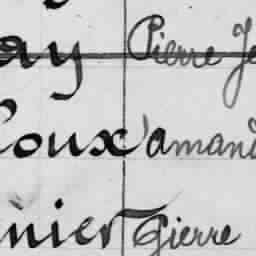 ay Pierre Je
Roux amand
nier Pierre